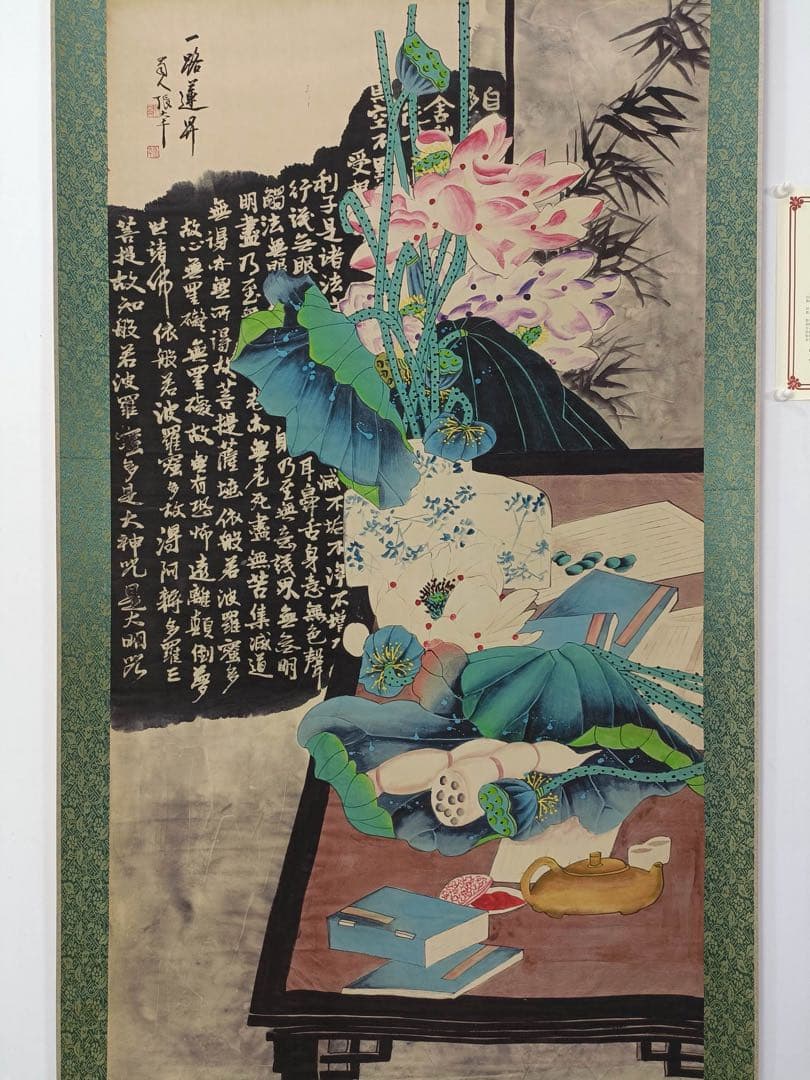 一路蓮昇
蜀人張大千
自
舍
異空不異
受想
利子是諸法 減不垢不淨不增
行識無眼耳鼻舌身意無色聲
觸法無眼界乃至無意識界無無明
明盡乃至無老死亦無老死盡無苦集滅道
無得亦無所得故菩提薩埵依般若波羅蜜多
故心無罣礙無罣礙故無有恐怖遠離顛倒夢
世諸佛依般若波羅蜜多故得阿耨多羅三
菩提故知般若波羅蜜多是大神咒是大明咒